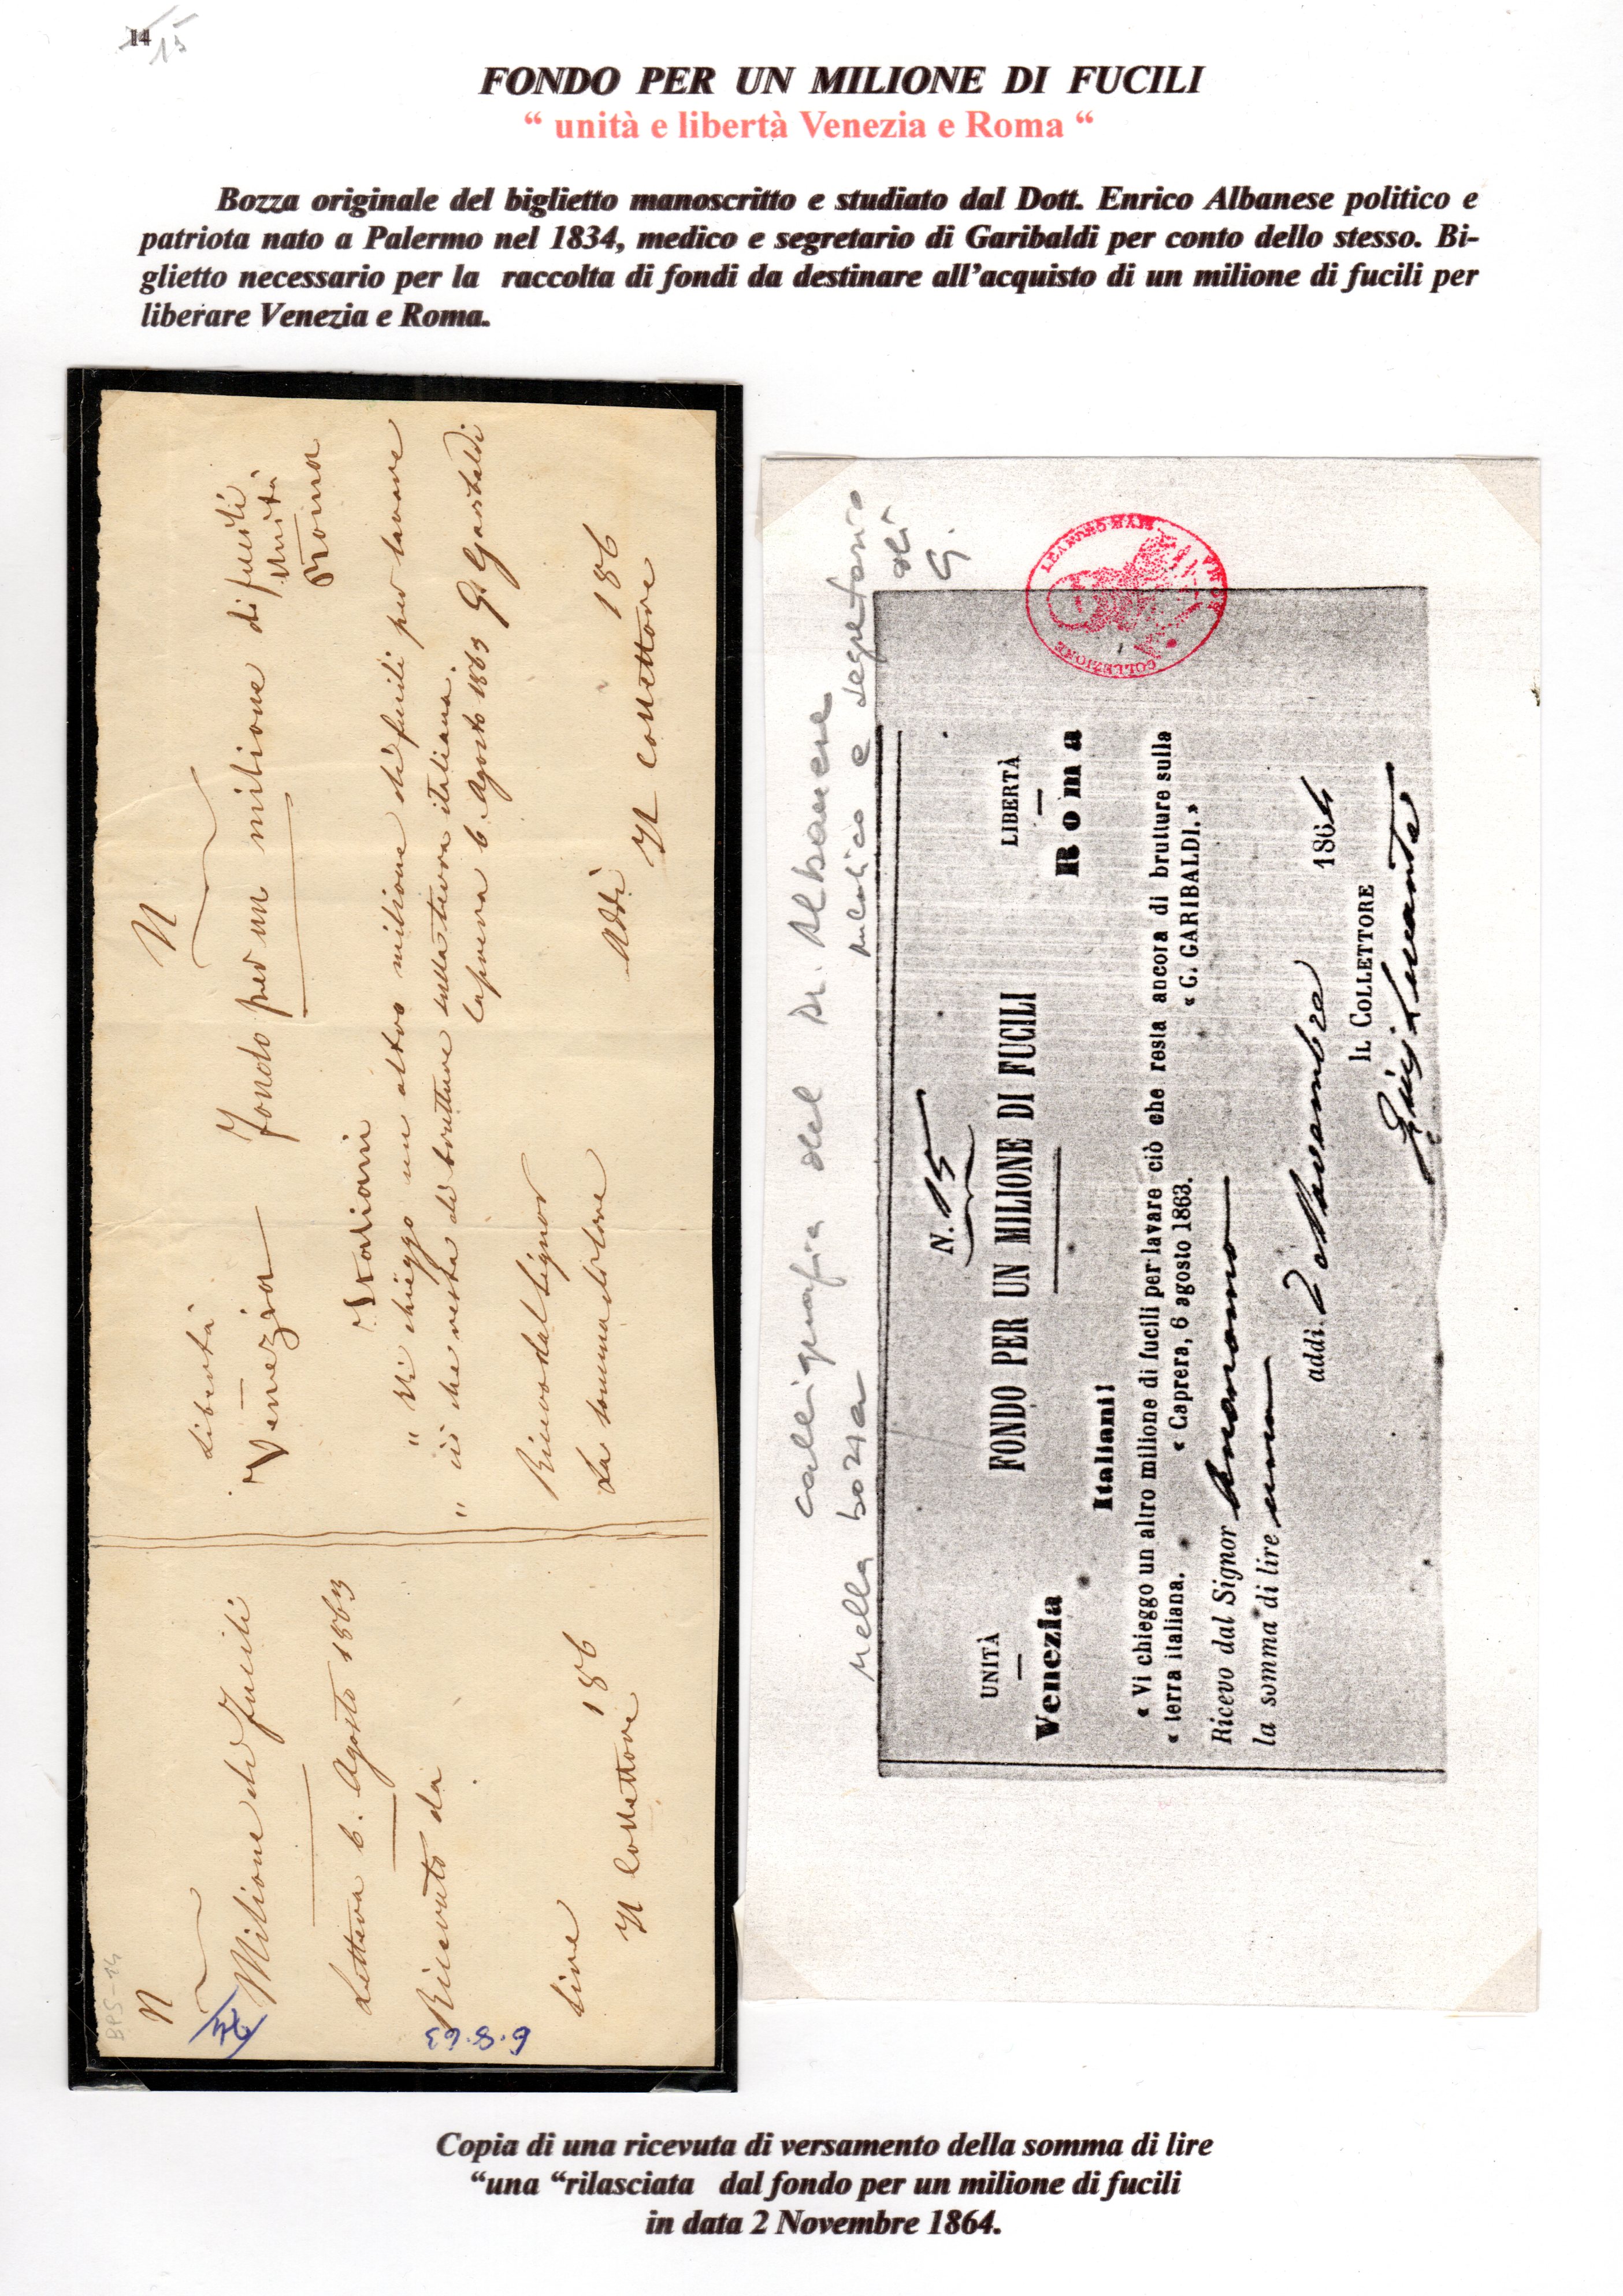 14 15
FONDO PER UN MILIONE DI FUCILI
“ unità e libertà Venezia e Roma “
Bozza originale del biglietto manoscritto e studiato dal Dott. Enrico Albanese politico e
patriota nato a Palermo nel 1834, medico e segretario di Garibaldi per conto dello stesso. Bi-
glietto necessario per la raccolta di fondi da destinare all’acquisto di un milione di fucili per
liberare Venezia e Roma.
N
Milione di Fucili
Lettera 6. Agosto 1863
Ricevuto da
Lire 186
Il Collettore
BPS-14
6.8.63
N
Libertà
Venezia
Fondo per un milione di fucili
Unità
Roma
Italiani
" Vi chieggo un altro milione di fucili per lavare
" ciò che resta di brutture sulla terra italiana.
Caprera 6. Agosto 1863 G. Garibaldi
Ricevo dal Signor
La somma di Lire
Addì 186
Il Collettore
calligrafia del Dr. Albanese
nella bozza medico e segretario
di
G.
COLLEZIONE LEANDRO MAIS ROMA
N. 15
FONDO PER UN MILIONE DI FUCILI
UNITÀ
Venezia
LIBERTÀ
Roma
Italiani!
« Vi chieggo un altro milione di fucili per lavare ciò che resta ancora di brutture sulla
« terra italiana.
« Caprera, 6 agosto 1863. « G. GARIBALDI. »
Ricevo dal Signor Anonomo
la somma di lire una
addì 2 Novembre 1864
IL COLLETTORE
Copia di una ricevuta di versamento della somma di lire
“una “rilasciata dal fondo per un milione di fucili
in data 2 Novembre 1864.